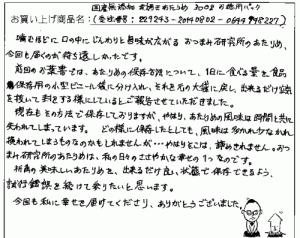 国産無添加 素焼きあたりめ 200g お徳用パック
お買い上げ商品名:(受注番号: 229243-20140802-0649948227)
噛むほどに口の中にじんわりと旨味が広がる おつまみ研究所のあたりめ、
今回も届くのが待ち遠しかったです。
前回のお葉書では、あたりめの保存方法について、1日に食べる量を食品
保存用の小型ビニール袋に分け入れ、それを元の大袋に戻し、出来るだけ空気
を抜いて封をする様にしているとご報告させていただきました。
現在もその方法で保存しておりますが、やはり、あたりめの風味は時間と共に
失われてしまいています。どの様に保存したとしても、風味は多かれ少なかれ
損われてしまうものなのかもしれませんが…やはりそこは、諦めきれません。おつ
まみ研究所のあたりめは、私の日々のささやかな幸せの1つなのです。
折角の美味しいあたりめを、出来るだけ良い状態で保存できるよう、
試行錯誤を続けて参りたいと思います。
今回も私に幸せを届けてくださり、ありがとうございました。